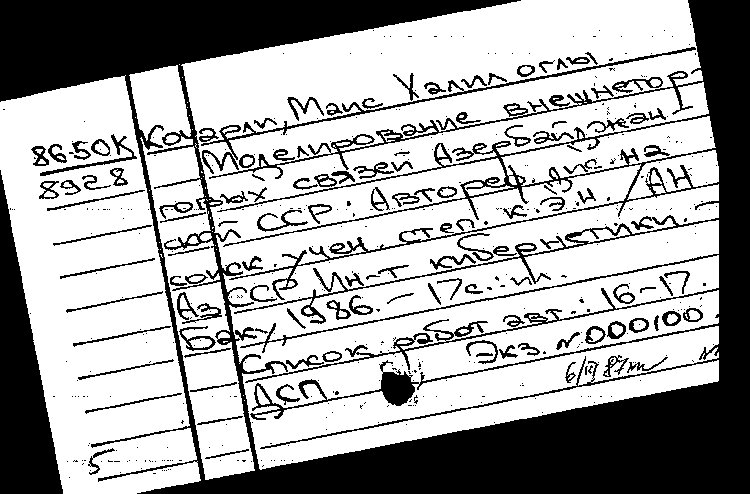 86-50К
8928
Кочарли, Маис Халил оглы.
Моделирование внешнетор-
говых связей Азербайджан-
ской ССР: Автореф. дис. на
соиск. учен. степ. к.э.н. / АН
АзССР, Ин-т кибернетики. -
Баку, 1986. - 17с.: ил.
Список работ авт.: 16-17.
Экз. №000100.
ДСП.
5